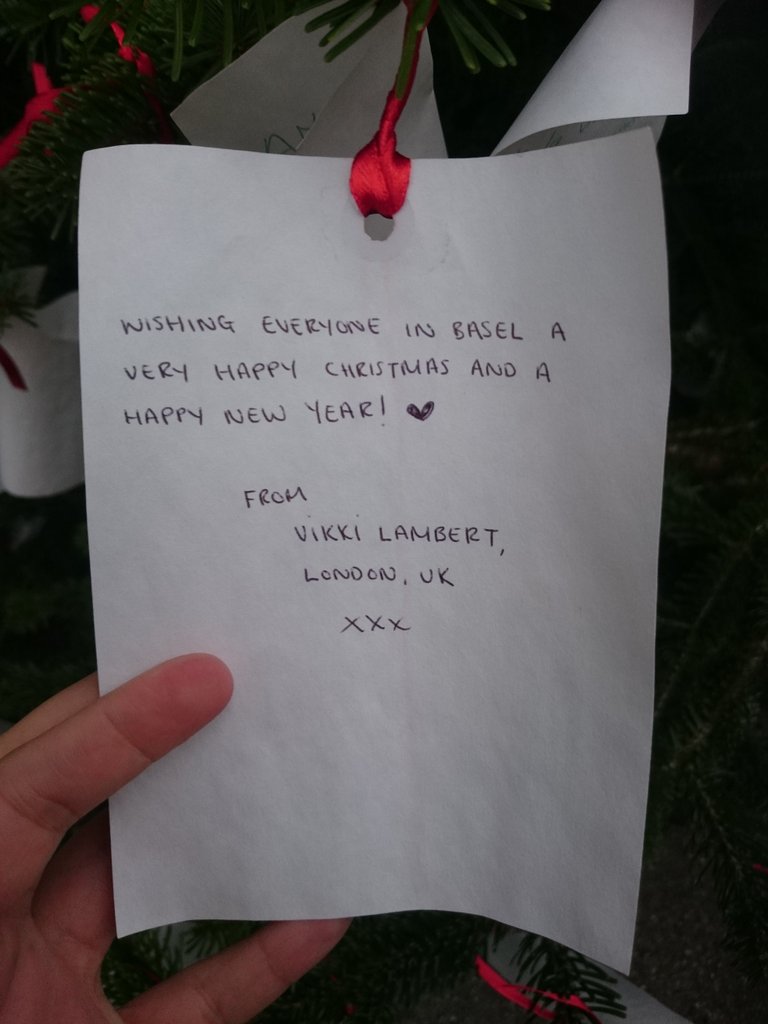 WISHING EVERYONE IN BASEL A
VERY HAPPY CHRISTMAS AND A
HAPPY NEW YEAR! ♥
FROM
VIKKI LAMBERT,
LONDON, UK
XXX